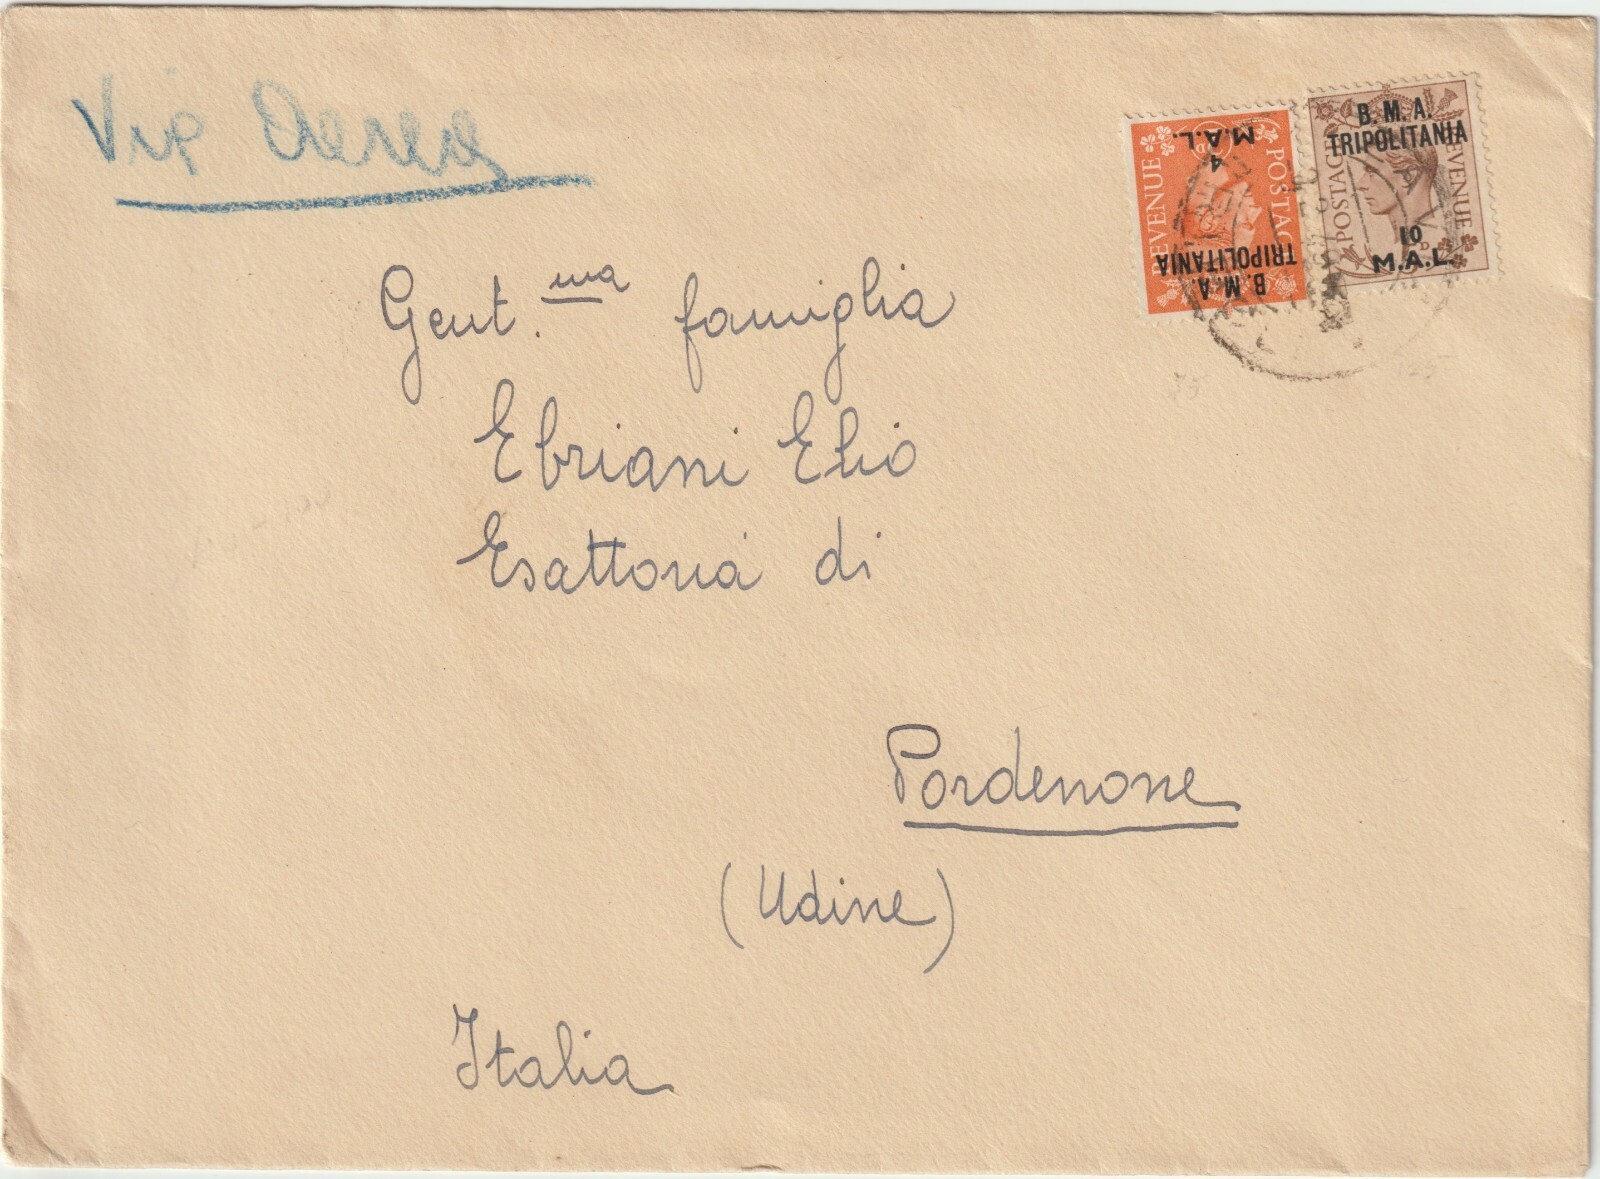 Via Aerea
B. M. A.
TRIPOLITANIA
POSTAGE REVENUE
10
M.A.L.
B. M. A.
TRIPOLITANIA
REVENUE
4
M.A.L.
Gent.ma famiglia
Ebriani Elio
Esattoria di
Pordenone
(Udine)
Italia